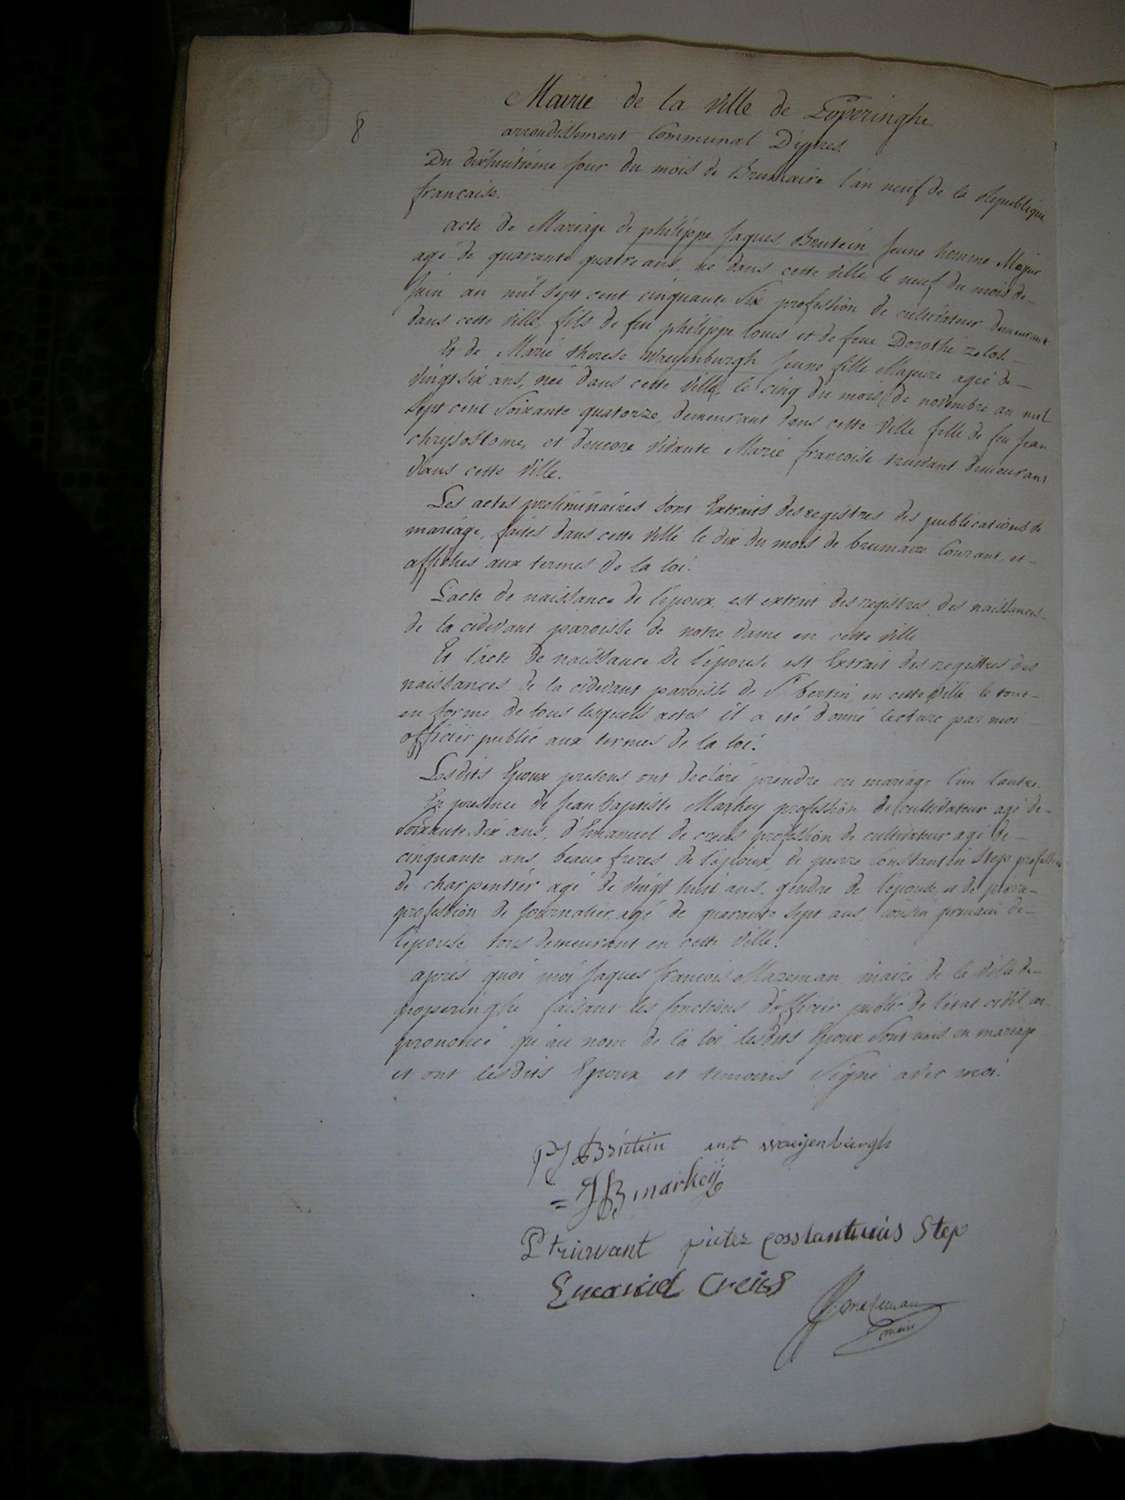 8
Mairie de la ville de Poperinghe
arrondissement Communal D'ypres
Du dixhuitième jour du mois de Brumaire l'an neuf de la République
française.
acte de Mariage de philippe Jaques Brutein jeune homme Majeur
agé de quarante quatre ans, né dans cette ville le neuf du mois de
juin an mil sept cent cinquante Six profession de cultivateur demeurant
dans cette ville, fils de feu philippe louis et de feue Dorothé
Et de Marie therese Waeyenburgh jeune fille Majeure agée de
vingt six ans, née dans cette ville, le cinq du mois de novembre an mil
sept cent soixante quatorze, demeurant dans cette ville fille de feu jean
chrysostome, et d'encore vivante Marie françoise truwant demeurant
dans cette ville.
Les actes préliminaires sont Extraits des registres des publications de
mariage, faites dans cette ville le dix du mois de brumaire Courant, et
affichés aux termes de la loi.
L'acte de naissance de l'époux est extrait des registres des naissances
de la cidevant paroisse de notre dame en cette ville
Et l'acte de naissance de l'épouse est Extrait des registres des
naissances de la cidevant paroisse de St bertin en cette ville le tout
en forme de tous lesquels actes il a été donné lecture par moi
officier public aux termes de la loi.
Lesdits Epoux presens ont déclaré prendre en mariage l'un l'autre.
En presence de Jean baptiste Markey profession de cultivateur agé de
soixante dix ans, d'Emanuel de creus profession de cultivateur agé de
cinquante ans, beaux freres de l'époux, de pierre Constantin Step profession
de charpentier agé de vingt huit ans, gendre de l'épouse et de pierre
profession de journalier agé de quarante sept ans cousin
l'épouse tous demeurant en cette ville.
après quoi moi Jaques francois Mazeman maire de la ville de
poperinghe faisant les fonctions d'officier public de l'état civil, ai
prononcé qu'au nom de la loi lesdits Epoux sont unis en mariage
et ont lesdits Epoux et temoins Signé avec moi.
PJ Brütein mt waeyenburgh
JB markey
P truwant pieter Constantinus Step
Emanuel Creus
Mazeman
maire